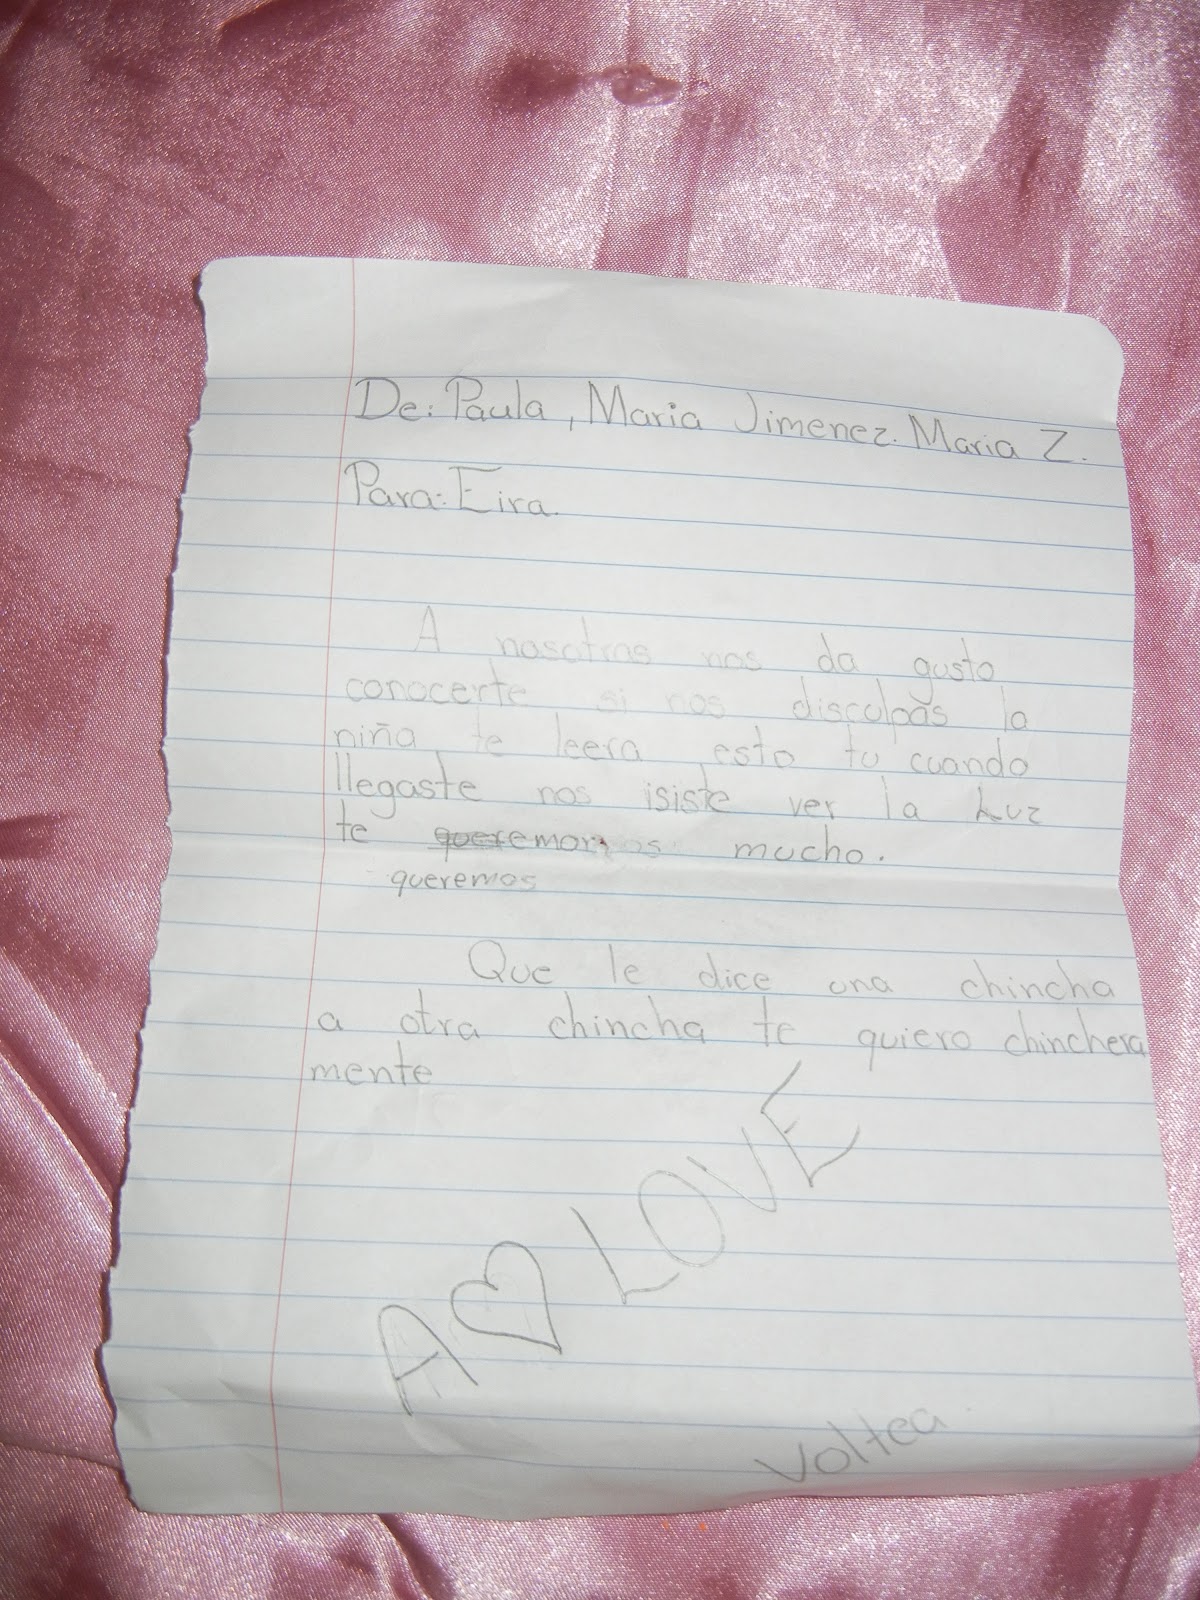 De: Paula, Maria Jimenez. Maria Z.
Para: Eira.
A nosotras nos da gusto
conocerte si nos disculpas la
niña te leera esto tu cuando
llegaste nos isiste ver la Luz
te queremos mucho.
queremos
Que le dice una chincha
a otra chincha te quiero chinchera
mente
A ♡ LOVE
Voltea